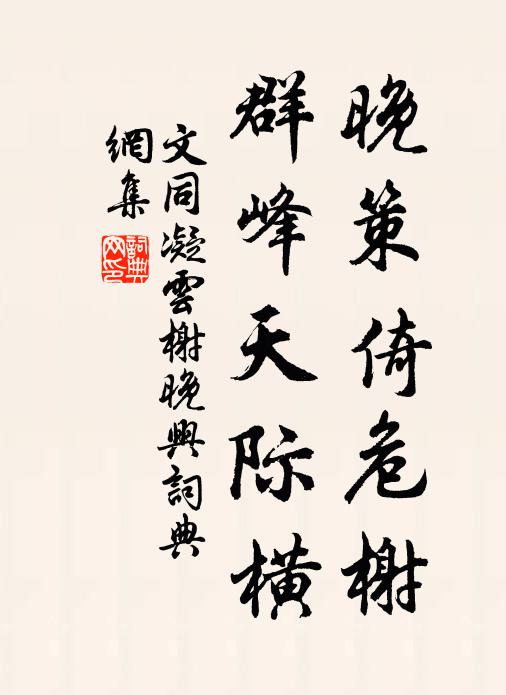 晚策倚危榭
群峰天际橫
文同凝雲榭晚興詞典
網集
詞典
网印